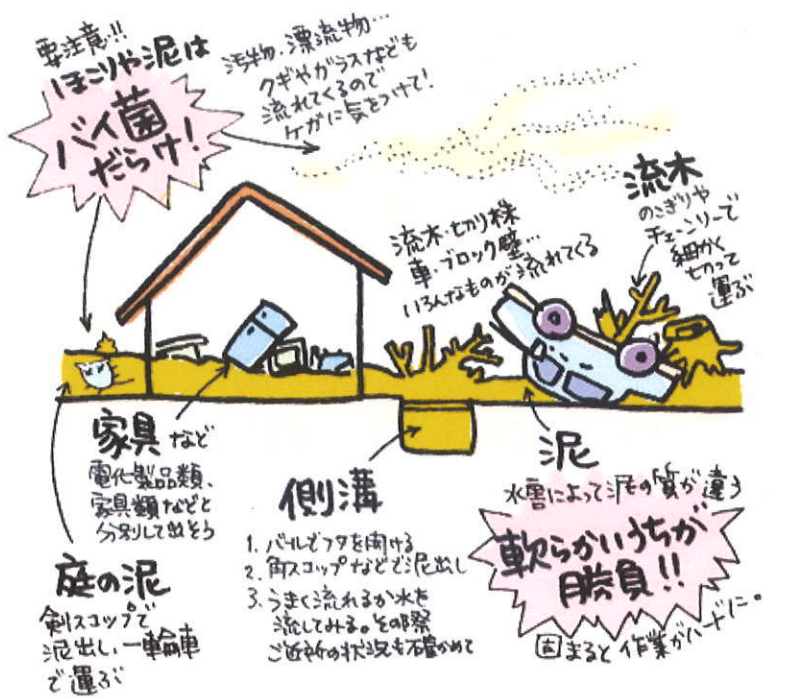 要注意!!
ほこりや泥は
バイ菌
だらけ!
汚物、漂流物…
クギやガラスなども
流れてくるので
ケガに気をつけて!
流木
のこぎりや
チェーンソーで
細かく
切って
運ぶ
流木・切り株
車・ブロック塀…
いろんなものが流れてくる
家具など
電化製品類、
家具類などと
分別して出そう
側溝
1. バールでフタを開ける
2. 角スコップなどで泥出し
3. うまく流れるか水を
流してみる。その際
ご近所の状況も確かめて
泥
水害によって泥の質が違う
軟らかいうちが
勝負!!
固まると作業がハードに。
庭の泥
剣スコップで
泥出し、一輪車
で運ぶ